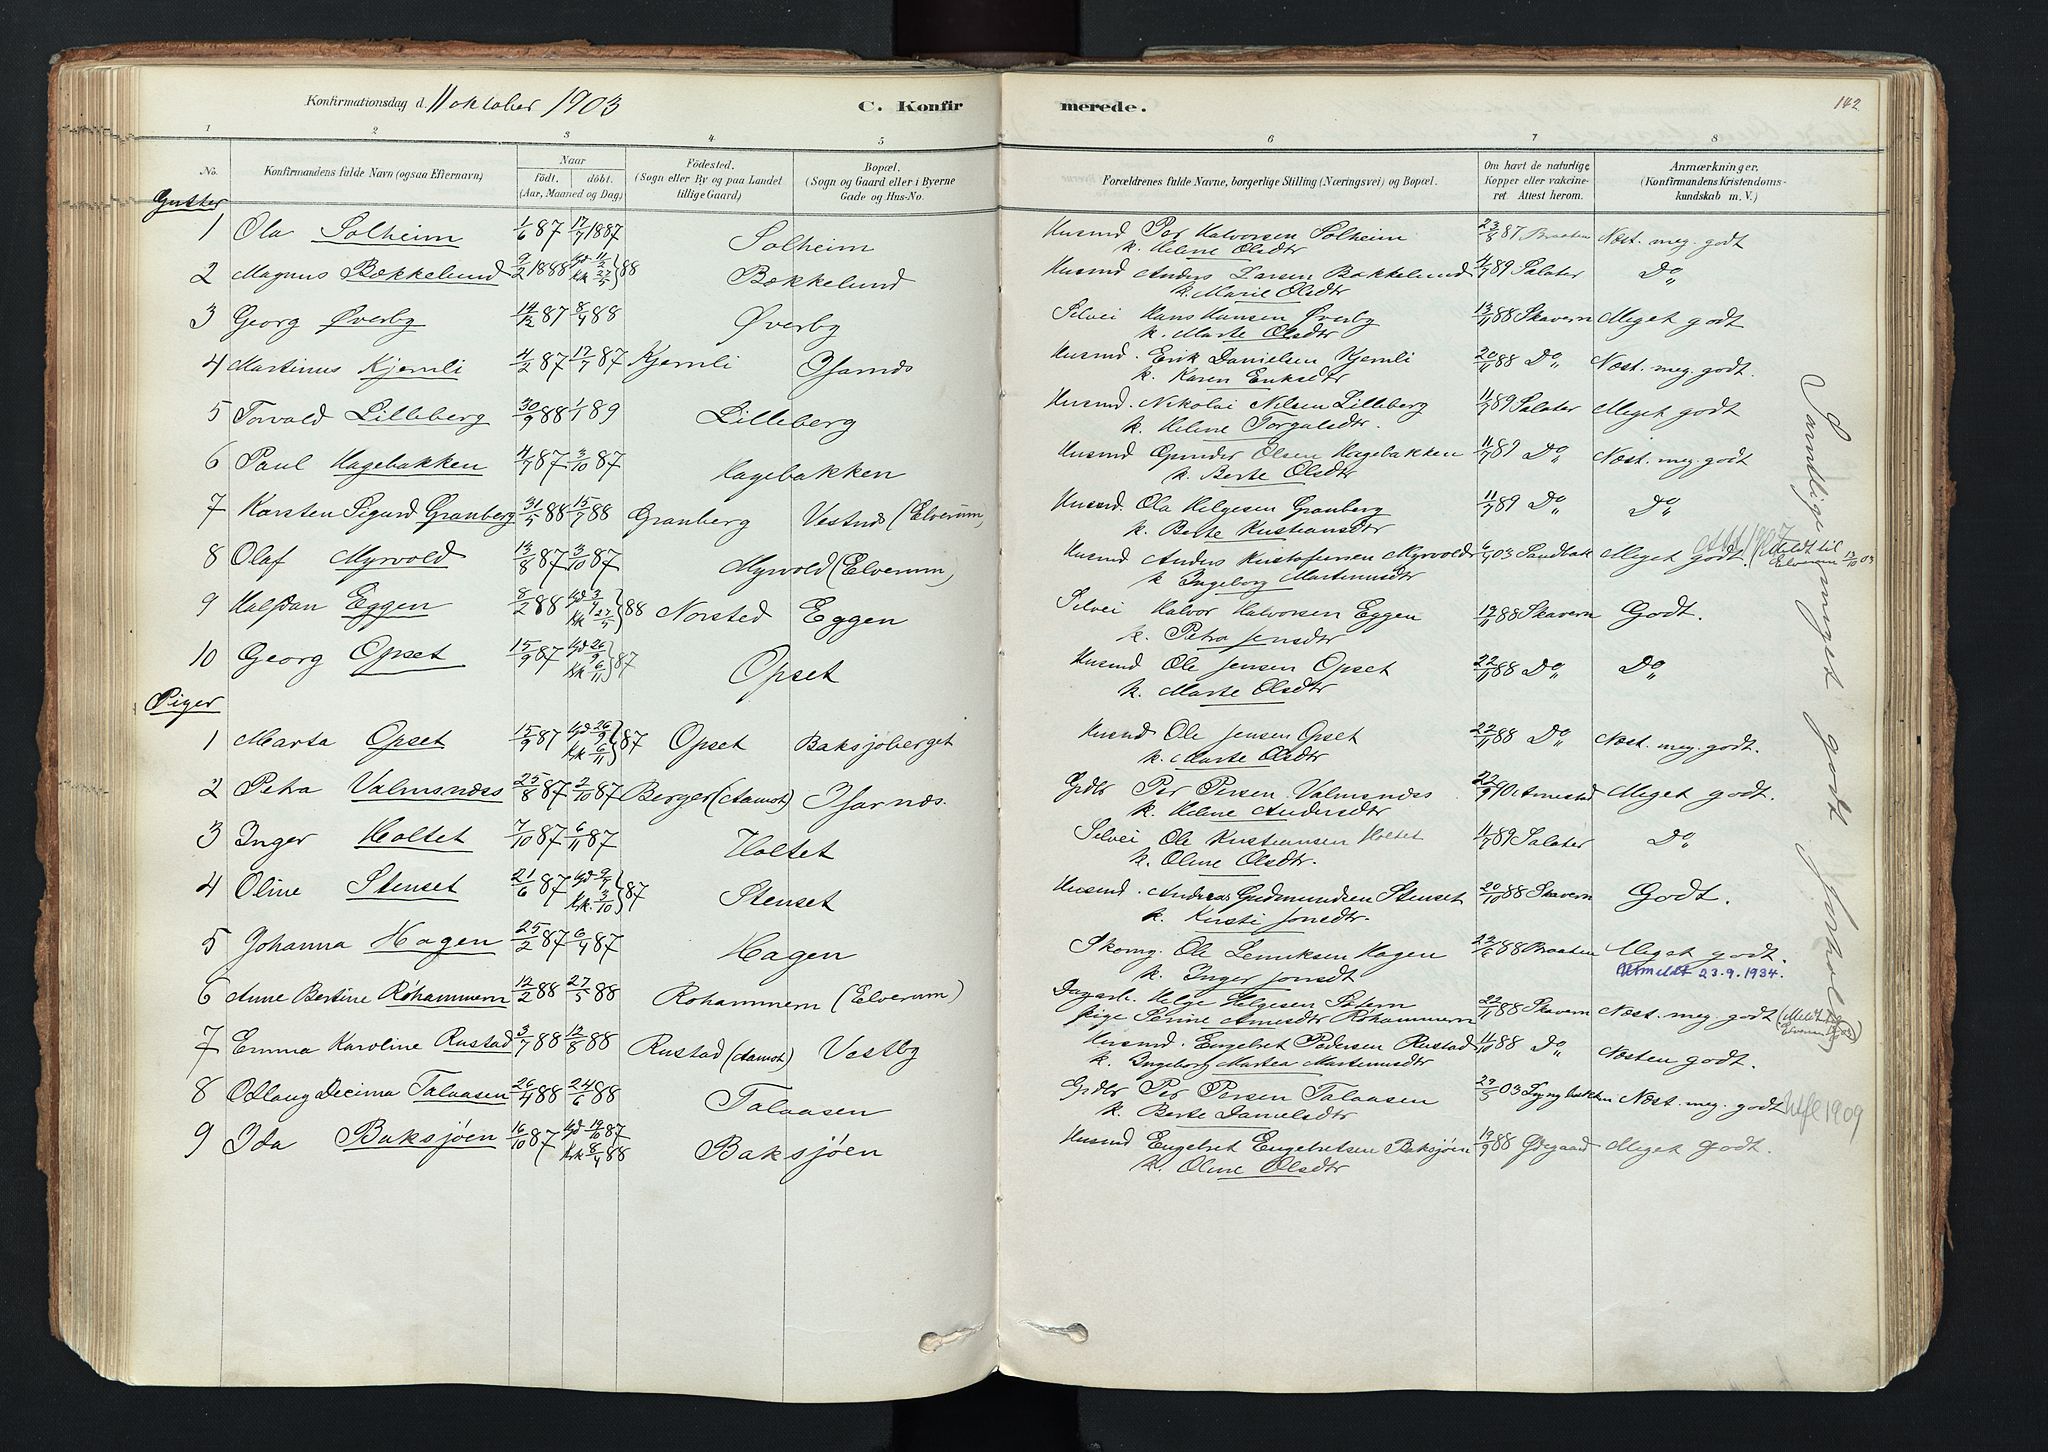 Konfirmationsdag d. 11 oktober 1903 C. Konfirmerede. 142
1 2 3 4 5 6 7 8
No. Konfirmandens fulde Navn (ogsaa Efternavn) Naar født. døbt. (Aar, Maaned og Dag) Fødested. (Sogn eller By og paa Landet tillige Gaard) Bopæl. (Sogn og Gaard eller i Byerne Gade og Hus-No. Forældrenes fulde Navne, borgerlige Stilling (Næringsvei) og Bopæl. Om havt de naturlige Kopper eller vakcineret. Attest herom. Anmærkninger, (Konfirmandens Kristendomskundskab m. V.)
Gutter
1 Ola Solheim 1/6 87 17/7 1887 Solheim Husmd Per Halvorsen Solheim 23/8 87 Braaten Næst. meg. godt
k. Helene Olsdtr
2 Magnus Bækkelund 9/2 1888 Gd 11/2 Kk 27/5 } 88 Bækkelund Husmd Anders Larsen Bækkelund 11/7 89 Sælater Do
k. Marie Olsdtr
3 Georg Øverby 14/12 87 8/4 88 Øverby Selvei Hans Hansen Øverby 13/11 88 Skavern Meget godt
k. Marte Olsdtr
4 Martinus Kjernli 4/2 87 17/7 87 Kjernli Osarnæs Husmd. Erik Danielsen Kjernli 20/11 88 Do Næst. meg. godt.
k. Karen Eriksdtr
5 Torvald Lilleberg 30/9 88 1/1 89 Lilleberg Husmd. Nikolai Nilsen Lilleberg 11/7 89 Sælater Meget godt
k. Helene Torgalsdtr.
6 Paul Hagebakken 4/7 87 3/10 87 Hagebakken Husmd Gunder Olsen Hagebakken 11/7 89 Do Næst. meg. godt
k. Berte Olsdtr
7 Karsten Sigurd Granberg 31/5 88 15/7 88 Granberg (Elverum) Husmd. Ola Helgesen Granberg 11/7 89 Do Do
k. Berte Kristiansdtr
8 Olaf Myrvold 13/8 87 3/10 87 Myrvold (Elverum) Husmd Anders Kristofersen Myrvold 6/4 03 Sandbak Meget godt. (Meldt til Elverum 13/10 03 1907
k. Ingeborg Martinusdtr
9 Halfdan Eggen 8/2 88 Gd 3/4 Kk 27/5 } 88 Norsted Eggen Selvei Halvor Halvorsen Eggen 19/11 88 Skavern Godt.
k. Petra Jensdtr
10 Georg Opset 15/9 87 Gd 26/9 Kk 6/11 } 87 Opset Husmd Ole Jensen Opset 22/11 88 Do Do
k. Marte Olsdtr
Piger
1 Marta Opset 15/9 87 Gd 26/9 Kk 6/11 } 87 Opset Baksjøberget Husmd Ole Jensen Opset 22/11 88 Do Næst. meg. godt.
k. Marte Olsdtr
2 Petra Valmsnæss 25/8 87 2/10 87 Berger (Aamot) Osarnæs. Grdbr Per Persen Valmsnæss 22/9 90 Arnestad Meget godt.
k. Helene Andersdtr
3 Inger Holtet 7/10 87 6/11 87 Holtet Selvei Ole Kristiansen Holtet 11/7 89 Sælater Do
k. Oline Olsdtr.
4 Oline Stenset 21/6 87 Kk. 3/10 } 87 Stenset Husmd. Andreas Gudmundsen Stenset 20/10 88 Skavern Godt.
k. Kirsti Jonsdtr.
5 Johanna Hagen 25/2 87 6/4 87 Hagen Skomg. Ole Henriksen Hagen 23/6 88 Braaten Meget godt.
k. Inger Jonsdt Utmeldt 23.9.1934.
6 Anne Bertine Røhammern 12/2 88 27/5 88 Rohammern (Elverum) Dagarb. Helge Helgesen 22/11 88 Skavern Næst. meg. godt (Meldt til Elverum
pige Serine Arnesdtr Røhammern
7 Emma Karoline Rustad 3/7 88 12/8 88 Rustad (Aamot) Vestby Husmd. Engebret Pedersen Rustad 11/10 88 Do Næsten godt.
k. Ingeborg Martea Martinusdtr
8 Odlaug Decima Talaasen 26/4 88 24/6 88 Talaasen Grdbr Per Persen Talaasen 29/5 03 Lyngbakken Næst. meg. godt Utfl 1909
k. Berte Danielsdtr
9 Ida Baksjøen 16/10 87 Gd 19/10 87 Kk 8/4 88 Baksjøen Husmd Engebret Engebretsen Baksjøen 19/9 88 Ødegaard Meget godt.
k. Oline Olsdtr
Samtlige meget godt forhold